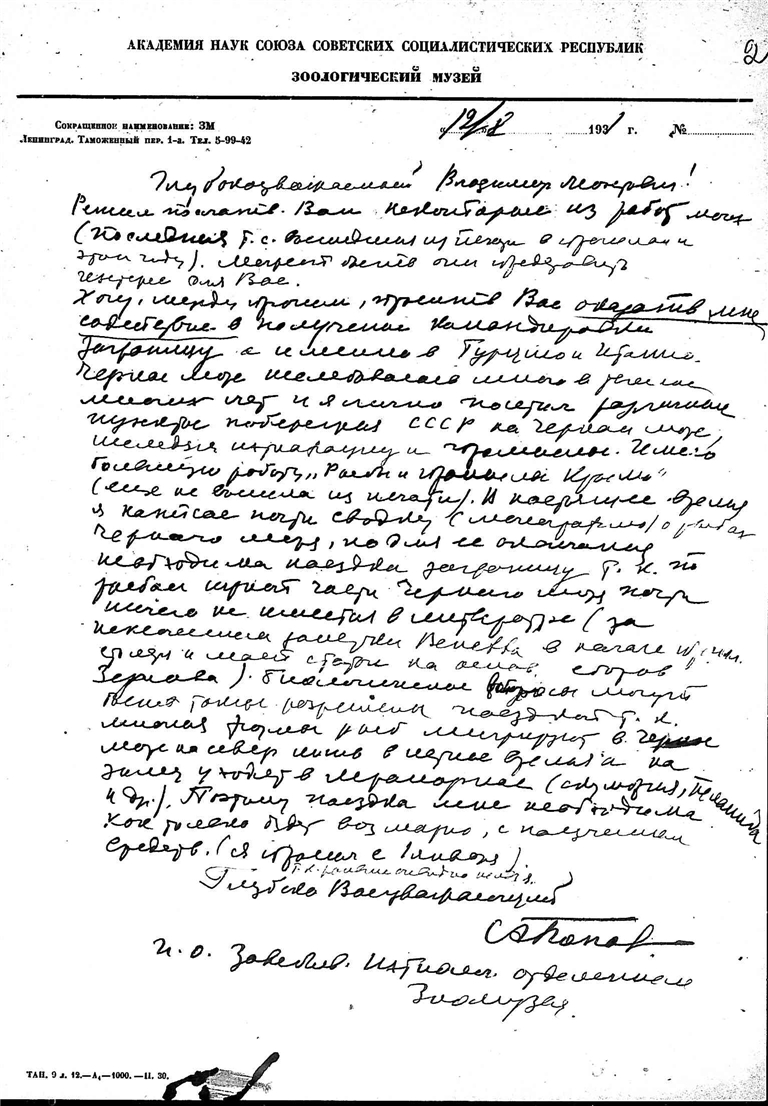 2
АКАДЕМИЯ НАУК СОЮЗА СОВЕТСКИХ СОЦИАЛИСТИЧЕСКИХ РЕСПУБЛИК
ЗООЛОГИЧЕСКИЙ МУЗЕЙ
Сокращенное наименование: ЗМ
Ленинград. Таможенный пер. 1-а. Тел. 5-99-42
„12/8 1931 г. №
Глубокоуважаемый Владимир !
Решил послать Вам некоторые из работ моих
(последняя т.е. вышедшая из печати в прошлом и
этом году). Может быть они представят
интерес для Вас.
Хочу, между прочим, просить Вас оказать мне
содействие в получение командировки
заграницу а именно в Турцию и Италию.
Черное море исследовалось много в течение
многих лет и я лично посетил различные
пункты побережия СССР на Черном море,
исследуя ихтиофауну и промыслы. Имею
большую работу „Рыбы и промыслы Крыма"
(еще не вышла из печати). В настоящее время
я написал почти сводку (монографию) о рыбах
Черного моря, но для ее окончания
необходима поездка заграницу т. к. по
рыбам южной части Черного моря почти
ничего не имеется в литературе (за
исключением заметки в начале
и моей статьи на основ. сборов
Зернова). Биологические вопросы могут
быть только разрешены поездкой т. к.
многия формы рыб мигрируют в Черное
море на север лишь в летнее время а на
зиму уходят в Мраморное (скумбрия, пеламида
и др.). Поэтому поездка мне необходима
как только будет возможно, с получением
средств. (я просил с 1 января)
т.к. раньше очевидно нельзя.
Глубоко Вас уважающий
АПопов
И. о. Заведыв. Ихтиолог. отделением
Зоомузея.
ТАП. 9 л. 12.—А₄—1000. —II. 30.